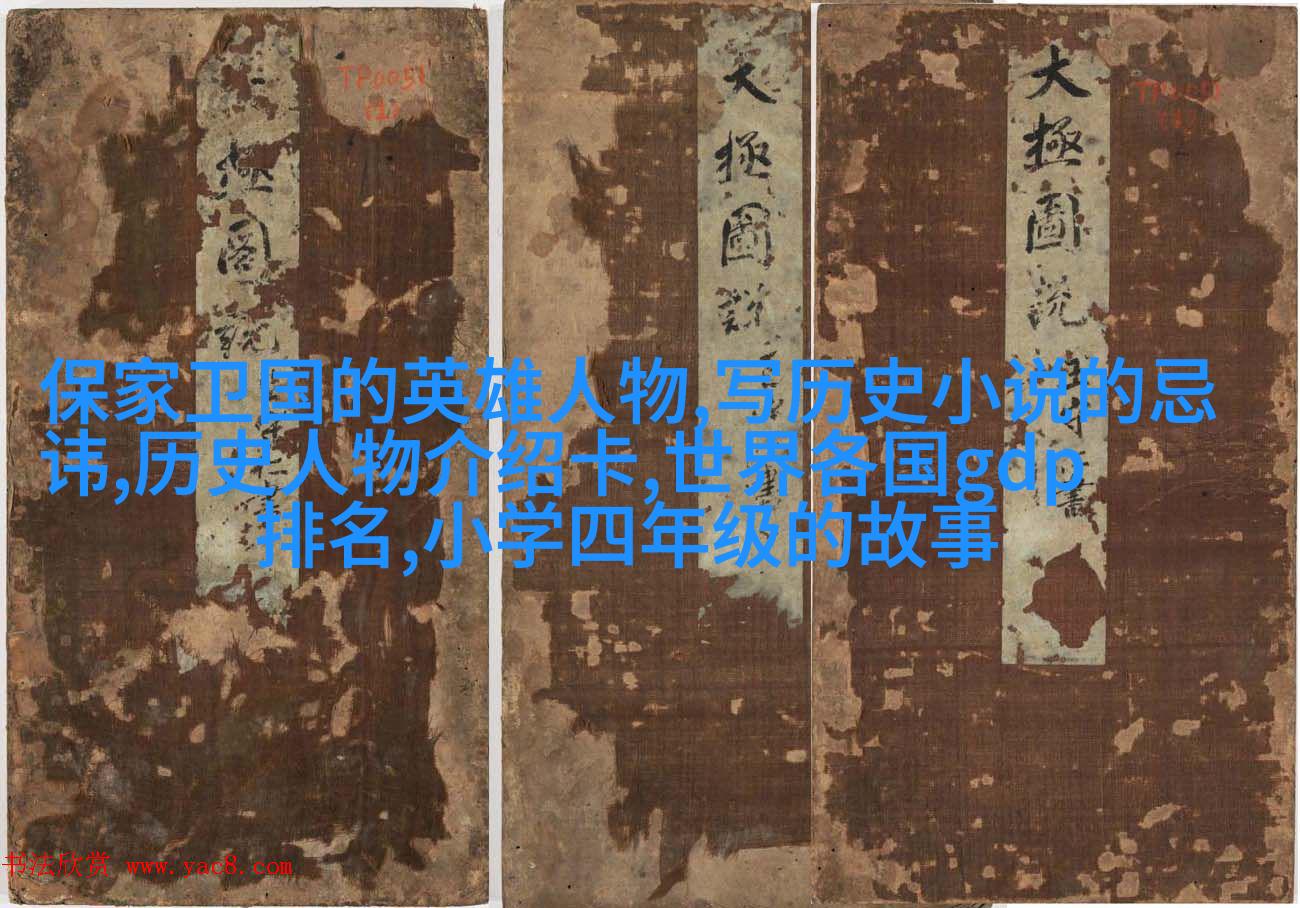 TP0051
(1)
極圖說
大極圖說
大極圖説
保家卫国的英雄人物,写历史小说的忌
讳,历史人物介绍卡,世界各国gdp
排名,小学四年级的故事
书法欣赏 www.yac8.com